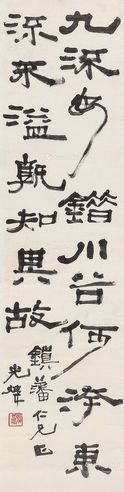 九州安錯川谷何洿東
流不溢孰知其故
鎮藩仁兄正
光煒